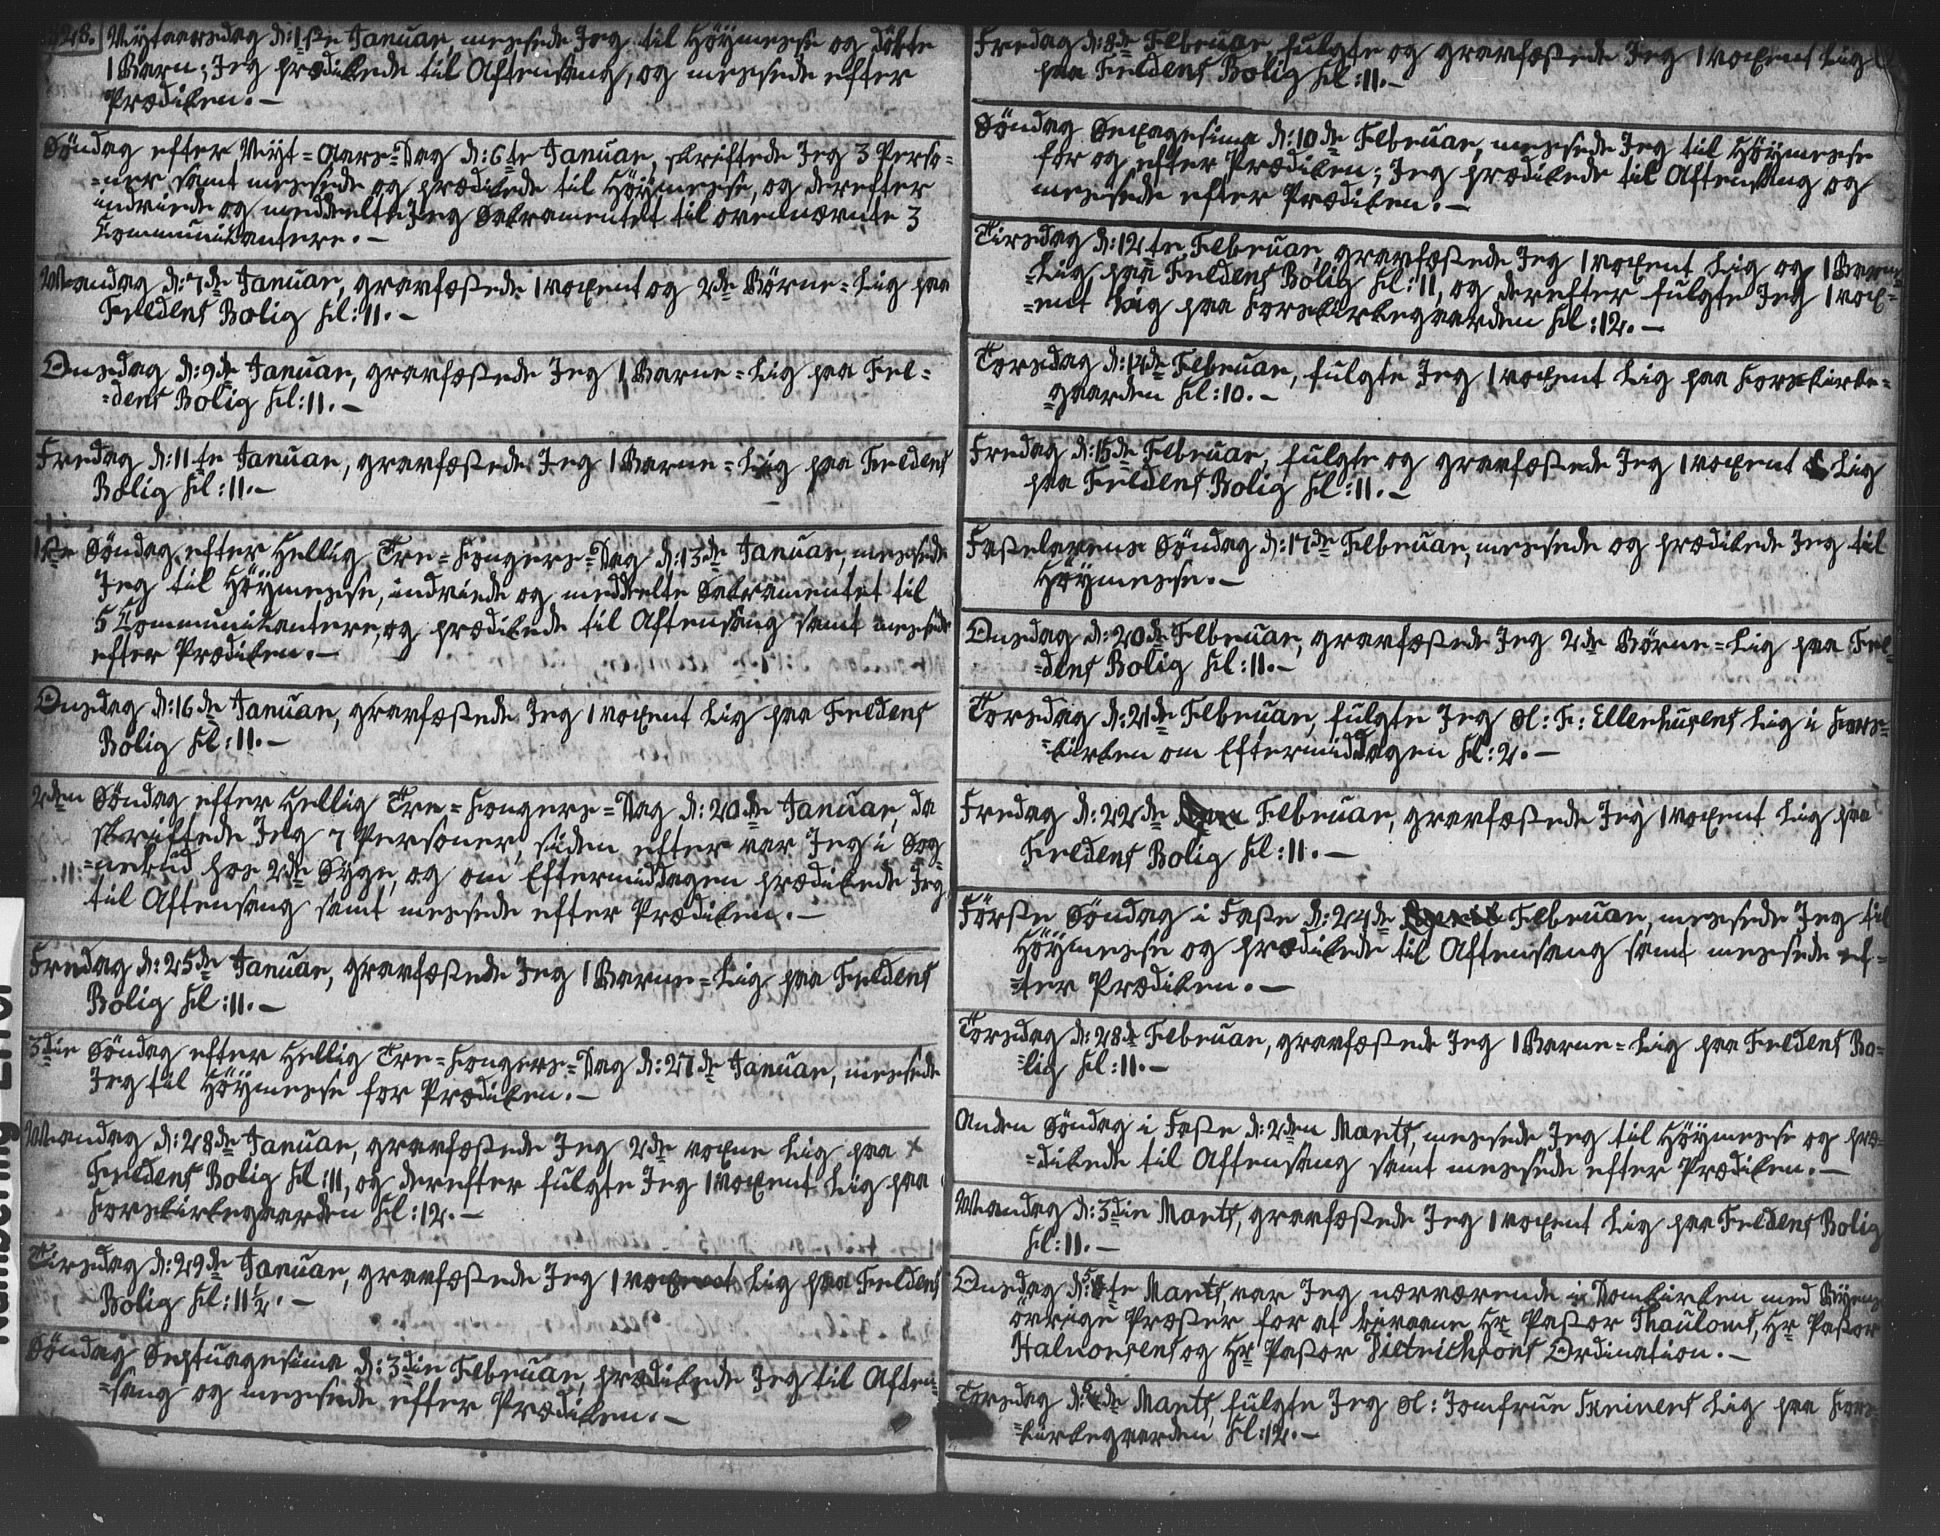 1828. Nÿtaarsdag d: 1ste Januar, messede Jeg til Höÿmesse og döbte
1 Barn; Jeg prædikede til Aftensang, og messede efter
Prædiken.-
Söndag efter Nÿt=Aars=Dag d: 6te Januar, skriftede Jeg 3 Perso=
=ner samt messede og prædikede til Höÿmesse, og derefter
indviede og meddeelte Jeg Sakramentet til ovennævnte 3
Communikantere.-
Mandag d: 7de Januar, gravfæstede 1 voxent og 2de Börne=Lig paa
Fieldens Bolig Kl: 11.-
Onsdag d: 9de Januar, gravfæstede Jeg 1 Barne=Lig paa Fiel=
=dens Bolig Kl: 11.-
Fredag d: 11te Januar, gravfæstede Jeg 1 Barne=Lig paa Fieldens
Bolig Kl: 11.-
1ste Söndag efter Hellig Tre=Kongers=Dag d: 13de Januar, messede
Jeg til Höÿmesse, indviede og meddelte Sakramentet til
5 Communikantere, og prædikede til Aftensang samt messede
efter Prædiken.-
Onsdag d: 16de Januar, gravfæstede Jeg 1 voxent Lig paa Fieldens
Bolig Kl: 11.-
2den Söndag efter Hellig Tre=Kongers=Dag d: 20de Januar, da
skriftede Jeg 7 Personer, siden efter var Jeg i Sog=
=nebud hos 2de Sÿge, og om Eftermiddagen prædikede Jeg
til Aftensang samt messede efter Prædiken.-
Fredag d: 25de Januar, gravfæstede Jeg 1 Barne=Lig paa Fieldens
Bolig Kl: 11.-
3die Söndag efter Hellig Tre=Kongers=Dag d: 27de Januar, messede
Jeg til Höÿmesse for Prædiken.-
Mandag d: 28de Januar, gravfæstede Jeg 2de voxne Lig paa
Fieldens Bolig Kl: 11, og derefter fulgte Jeg 1 voxent Lig paa
Korskirkegaarden Kl: 12.-
Tirsdag d: 29de Januar, gravfæstede Jeg 1 voxent Lig paa Fieldens
Bolig Kl: 11½.-
Söndag Septuagesima d: 3die Februar, prædikede Jeg til Aften=
=sang og messede efter Prædiken.-
Fredag d: 8de Februar, fulgte og gravfæstede Jeg 1 voxent Lig
paa Fieldens Bolig Kl: 11.-
Söndag Sexagesima d: 10de Februar, messede Jeg til Höÿmesse
for og efter Prædiken; Jeg prædikede til Aftensang og
messede efter Prædiken.-
Tirsdag d: 12te Februar, gravfæstede Jeg 1 voxent Lig og 1 Barne
=Lig paa Fieldens Bolig Kl: 11, og derefter fulgte Jeg 1 vox=
=ent Lig paa Korskirkegaarden Kl: 12.-
Torsdag d: 14de Februar, fulgte Jeg 1 voxent Lig paa Korskirke=
=gaarden Kl: 10.-
Fredag d: 15de Februar, fulgte og gravfæstede Jeg 1 voxent Lig
paa Fieldens Bolig Kl: 11.-
Fastelavens Söndag d: 17de Februar, messede og prædikede Jeg til
Höÿmesse.-
Onsdag d: 20de Februar, gravfæstede Jeg 2de Börne=Lig paa Fiel=
=dens Bolig Kl: 11.-
Torsdag d: 21de Februar, fulgte Jeg Sl: F: Ellerhusens Lig i Kors=
=kirken om Eftermiddagen Kl: 2.-
Fredag d: 22de Februar, gravfæstede Jeg 1 voxent Lig paa
Fieldens Bolig Kl: 11.-
Förste Söndag i Faste d: 24de Februar, messede Jeg til
Höÿmesse og prædikede til Aftensang samt messede ef=
=ter Prædiken.-
Torsdag d: 28de Februar, gravfæstede Jeg 1 Barne=Lig paa Fieldens Bo=
=lig Kl: 11.-
Anden Söndag i Faste d: 2den Marts, messede Jeg til Höÿmesse og præ=
=dikede til Aftensang samt messede efter Prædiken.-
Mandag d: 3die Marts, gravfæstede Jeg 1 voxent Lig paa Fieldens Bolig
Kl: 11.-
Onsdag d: 5te Marts, var Jeg nærværende i Domkirken med Bÿens
övrige Præster for at bivaane Hr Pastor Thaulows, Hr Pastor
Halvorsens og Hr Pastor Dietrichsons Ordination.-
Torsdag d: 6de Marts, fulgte Jeg Sl: Jomfrue Lig paa Kors=
=kirkegaarden Kl: 12.-